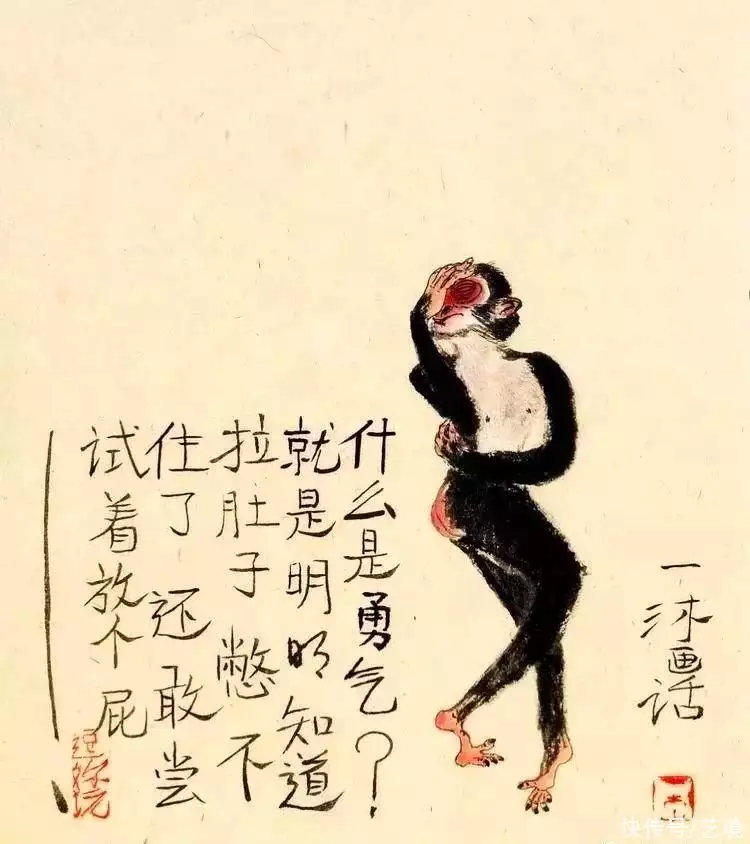 什么是勇气？
就是明明知道
拉肚子 憋不
住了 还敢尝
试着放个屁
逗你玩
一沐画话
快传号/艺境